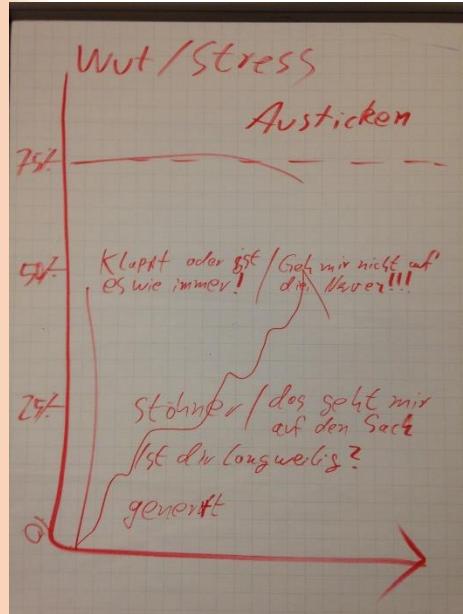 Wut/Stress
Austicken
75%
50%
Klappt oder ist / Geh mir nicht auf
es wie immer! die Nerven!!!
25%
Stöhnen / das geht mir
auf den Sack
Ist dir langweilig?
genervt
0